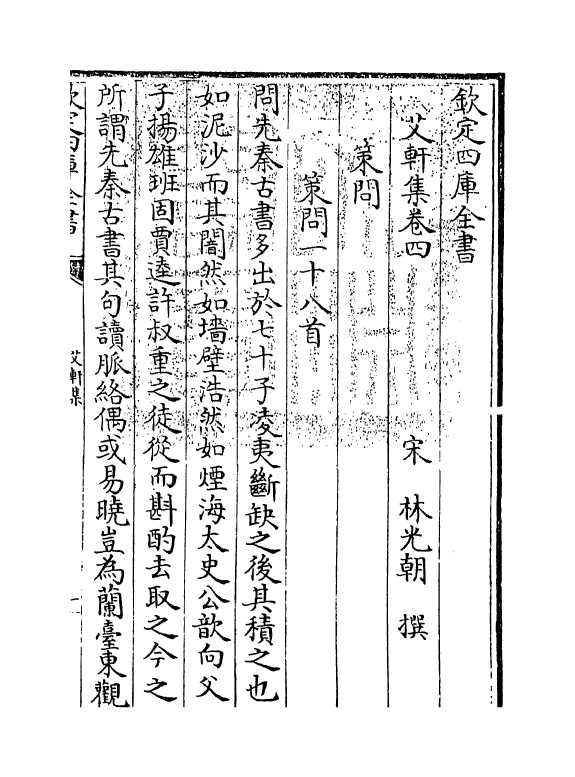 欽定四庫全書
艾軒集卷四
宋 林光朝 撰
策問
策問一十八首
問先秦古書多出於七十子凌夷斷缺之後其積之也
如泥沙而其闇然如墻壁浩然如煙海太史公歆向父
子揚雄班固賈逵許叔重之徒從而斟酌去取之今之
所謂先秦古書其句讀脈絡偶或易曉豈為蘭臺東觀
欽定四庫全書
艾軒集
一